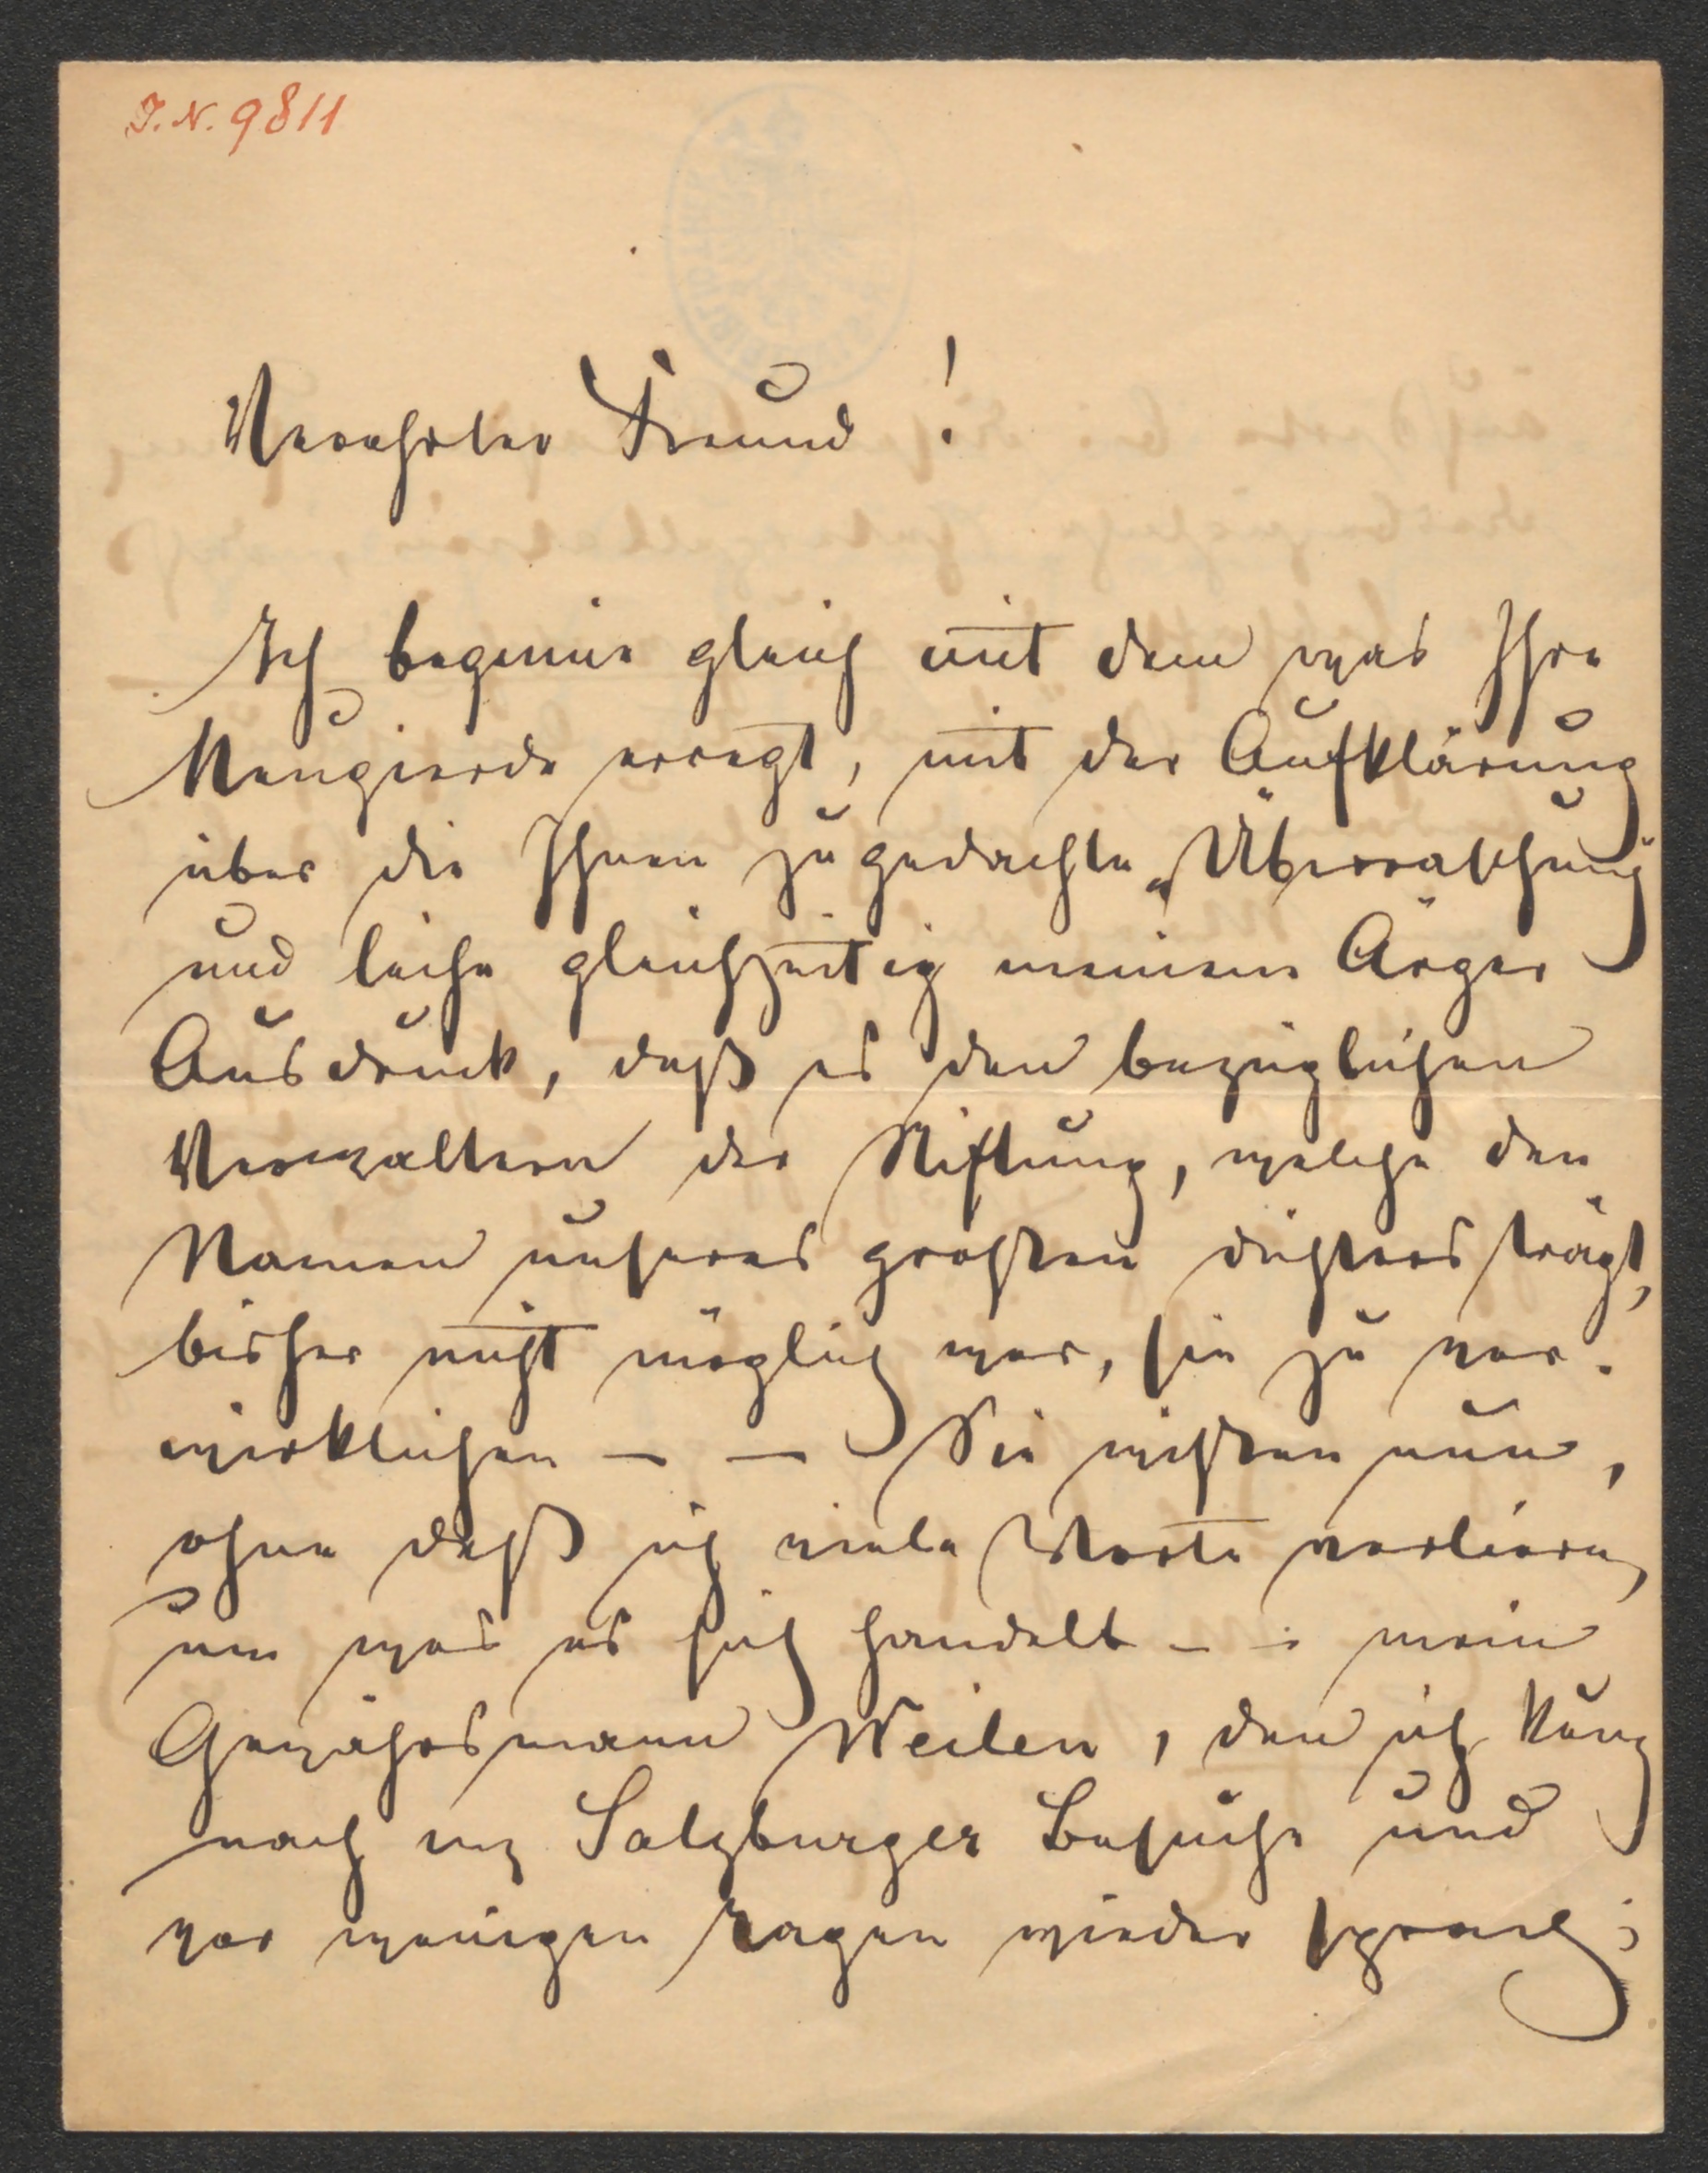 I. N. 9811
Verehrter Freund!
Ich beginne gleich mit dem was Ihre
Neugierde erregt, mit der Aufklärung
über die Ihnen zugedachte „Überraschung"
und leihe gleichzeitig meinem Ärger
Ausdruck, daß es den bezüglichen
Verwaltern der Stiftung, welche den
Namen unseres großen Dichters trägt,
bisher nicht möglich war, sie zu ver-
wirklichen – – Sie wissen nun,
ohne daß ich viele Worte verliere,
um was es sich handelt – – mein
Gewährsmann Weilen, den ich kurz
nach Salzburger Besuche und
vor wenigen Tagen wieder sprach;